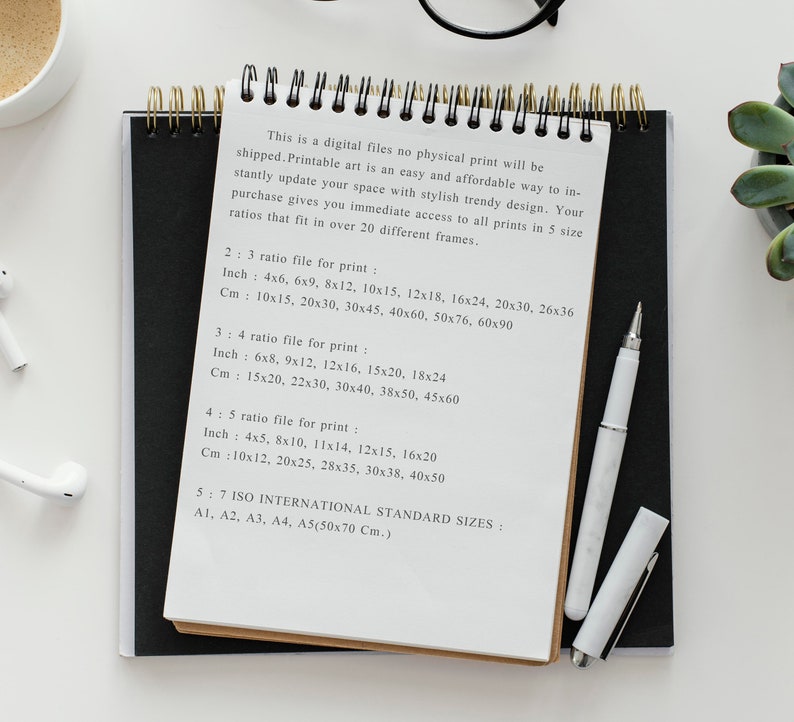 This is a digital files no physical print will be
shipped.Printable art is an easy and affordable way to in-
stantly update your space with stylish trendy design. Your
purchase gives you immediate access to all prints in 5 size
ratios that fit in over 20 different frames.
2 : 3 ratio file for print :
Inch : 4x6, 6x9, 8x12, 10x15, 12x18, 16x24, 20x30, 26x36
Cm : 10x15, 20x30, 30x45, 40x60, 50x76, 60x90
3 : 4 ratio file for print :
Inch : 6x8, 9x12, 12x16, 15x20, 18x24
Cm : 15x20, 22x30, 30x40, 38x50, 45x60
4 : 5 ratio file for print :
Inch : 4x5, 8x10, 11x14, 12x15, 16x20
Cm :10x12, 20x25, 28x35, 30x38, 40x50
5 : 7 ISO INTERNATIONAL STANDARD SIZES :
A1, A2, A3, A4, A5(50x70 Cm.)